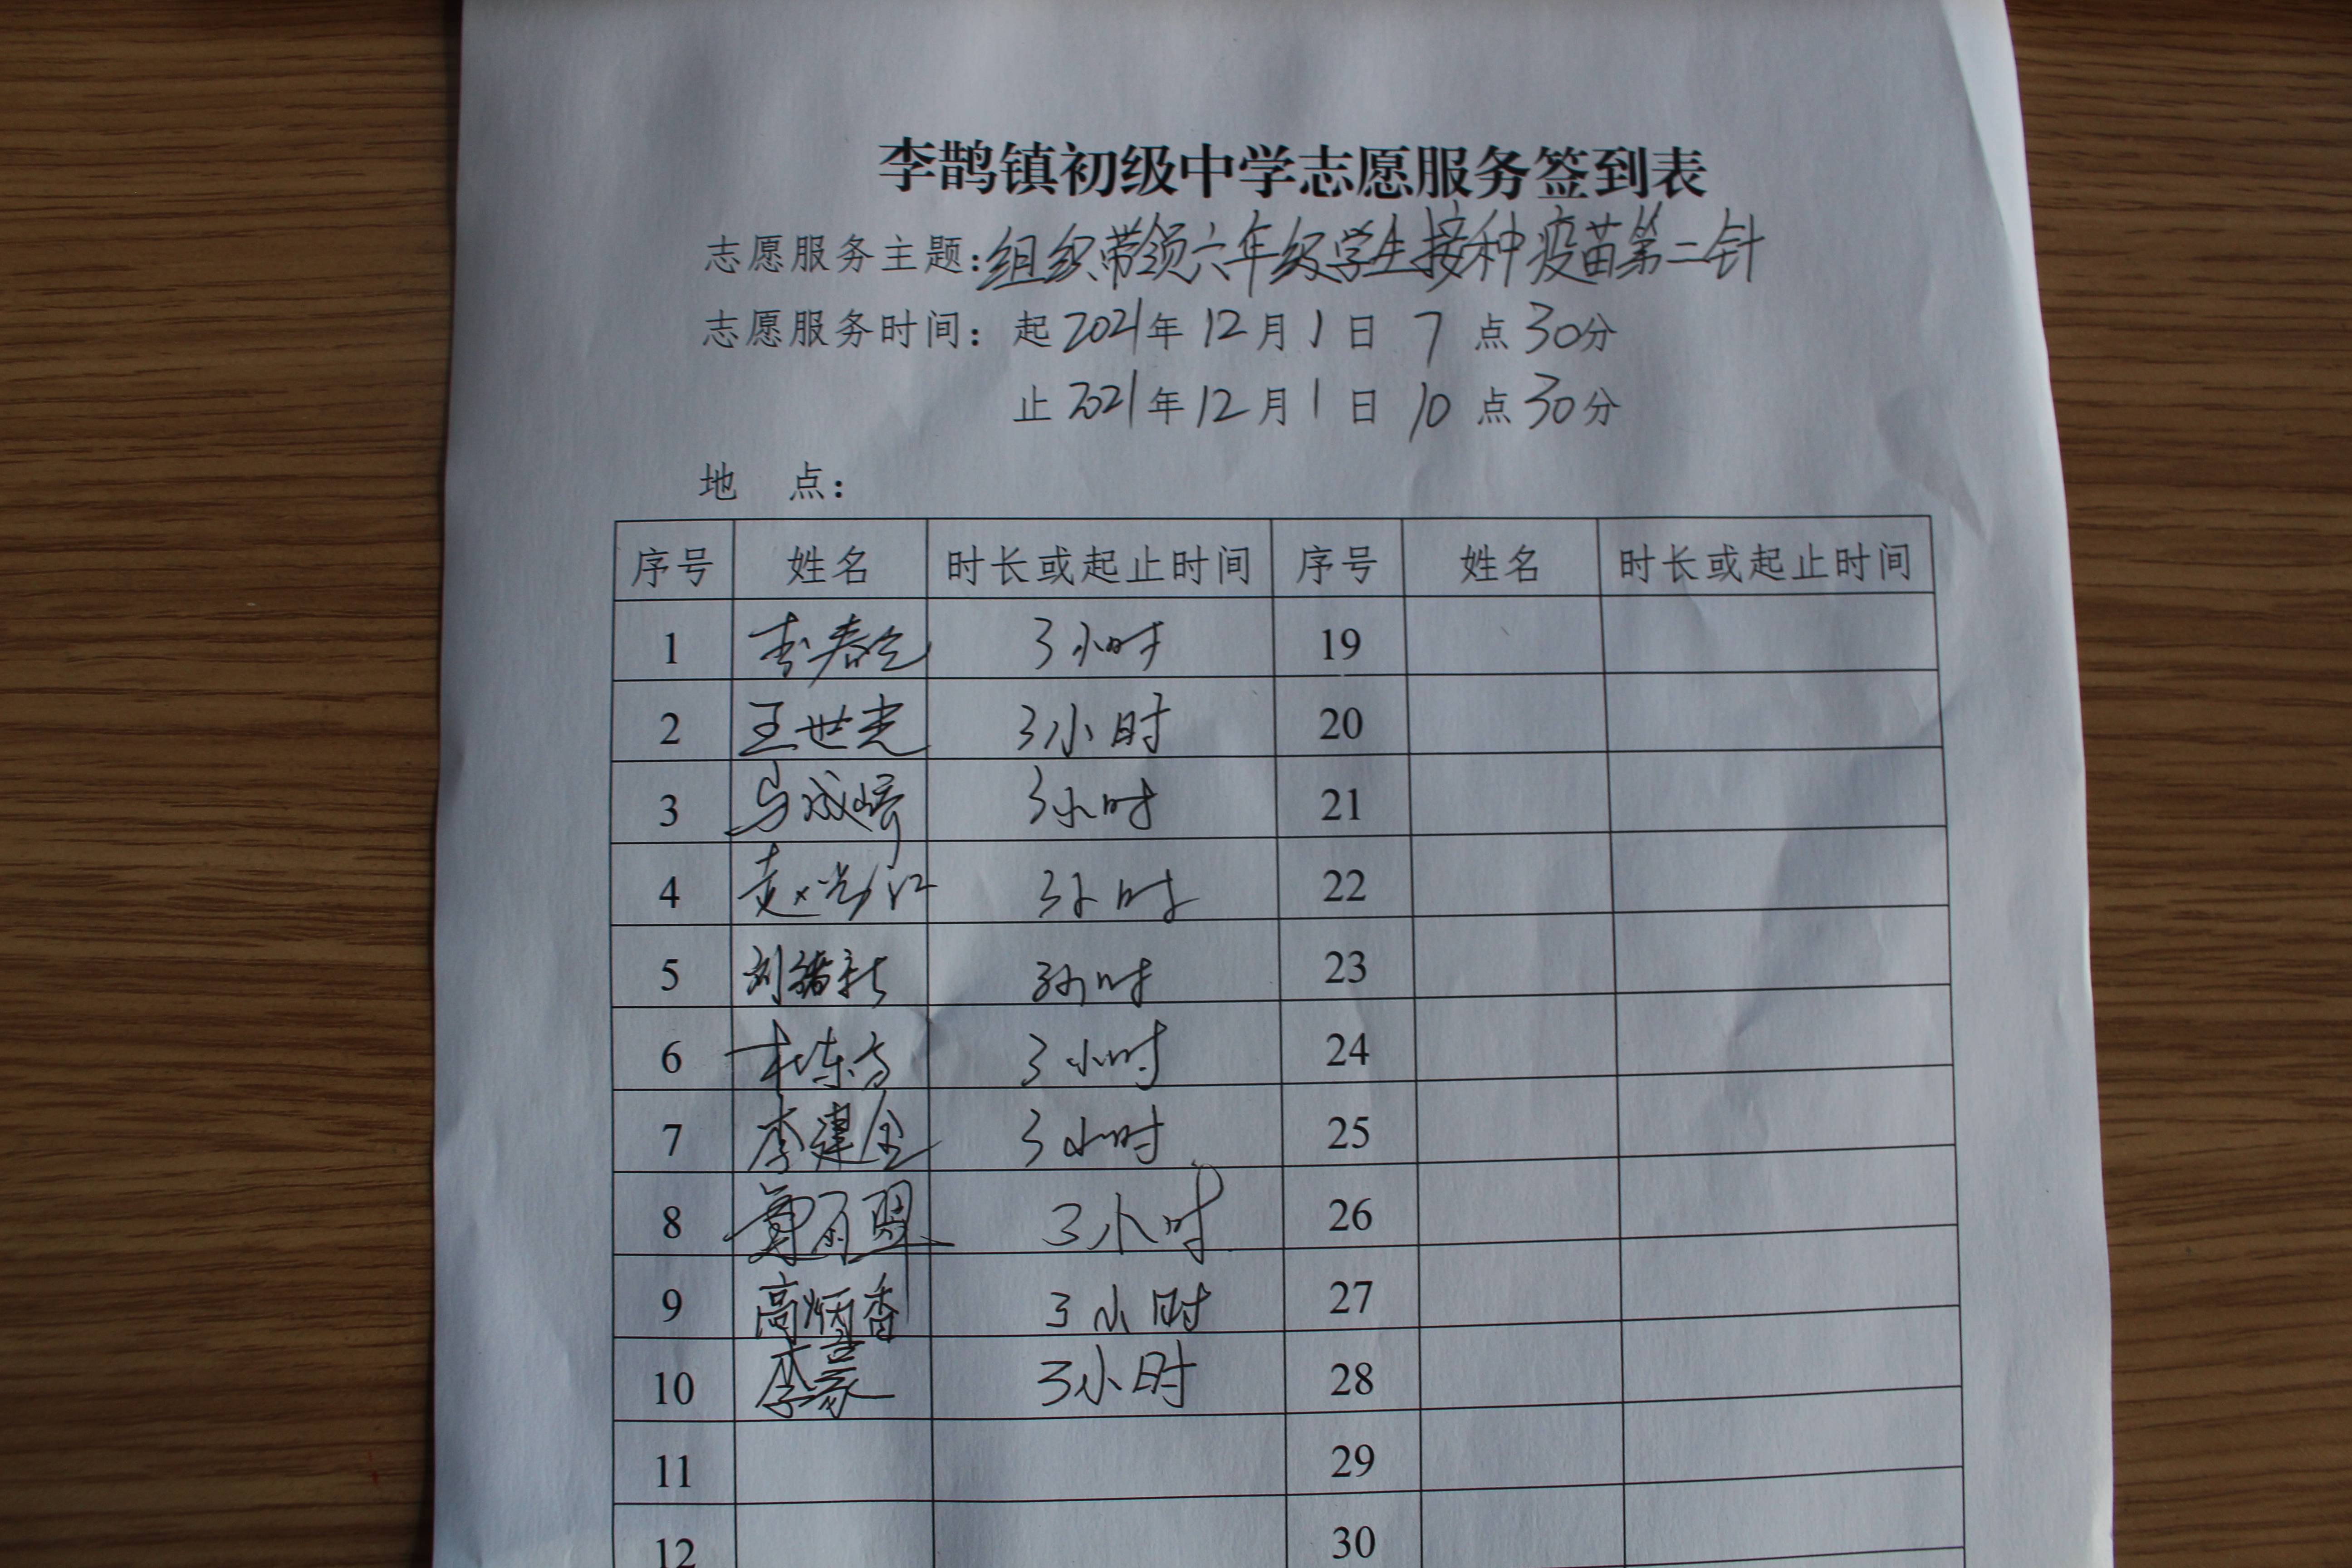 李鹊镇初级中学志愿服务签到表
志愿服务主题:组织带领六年级学生接种疫苗第二针
志愿服务时间: 起2021年12月1日 7点30分
止2021年12月1日 10点30分
地 点:
序号 姓名 时长或起止时间 序号 姓名 时长或起止时间
1 李春 3小时 19
2 王世光 3小时 20
3 3小时 21
4 赵 3小时 22
5 刘 3小时 23
6 杜东方 3小时 24
7 李建 3小时 25
8 3小时 26
9 高炳香 3小时 27
10 李豪 3小时 28
11 29
12 30